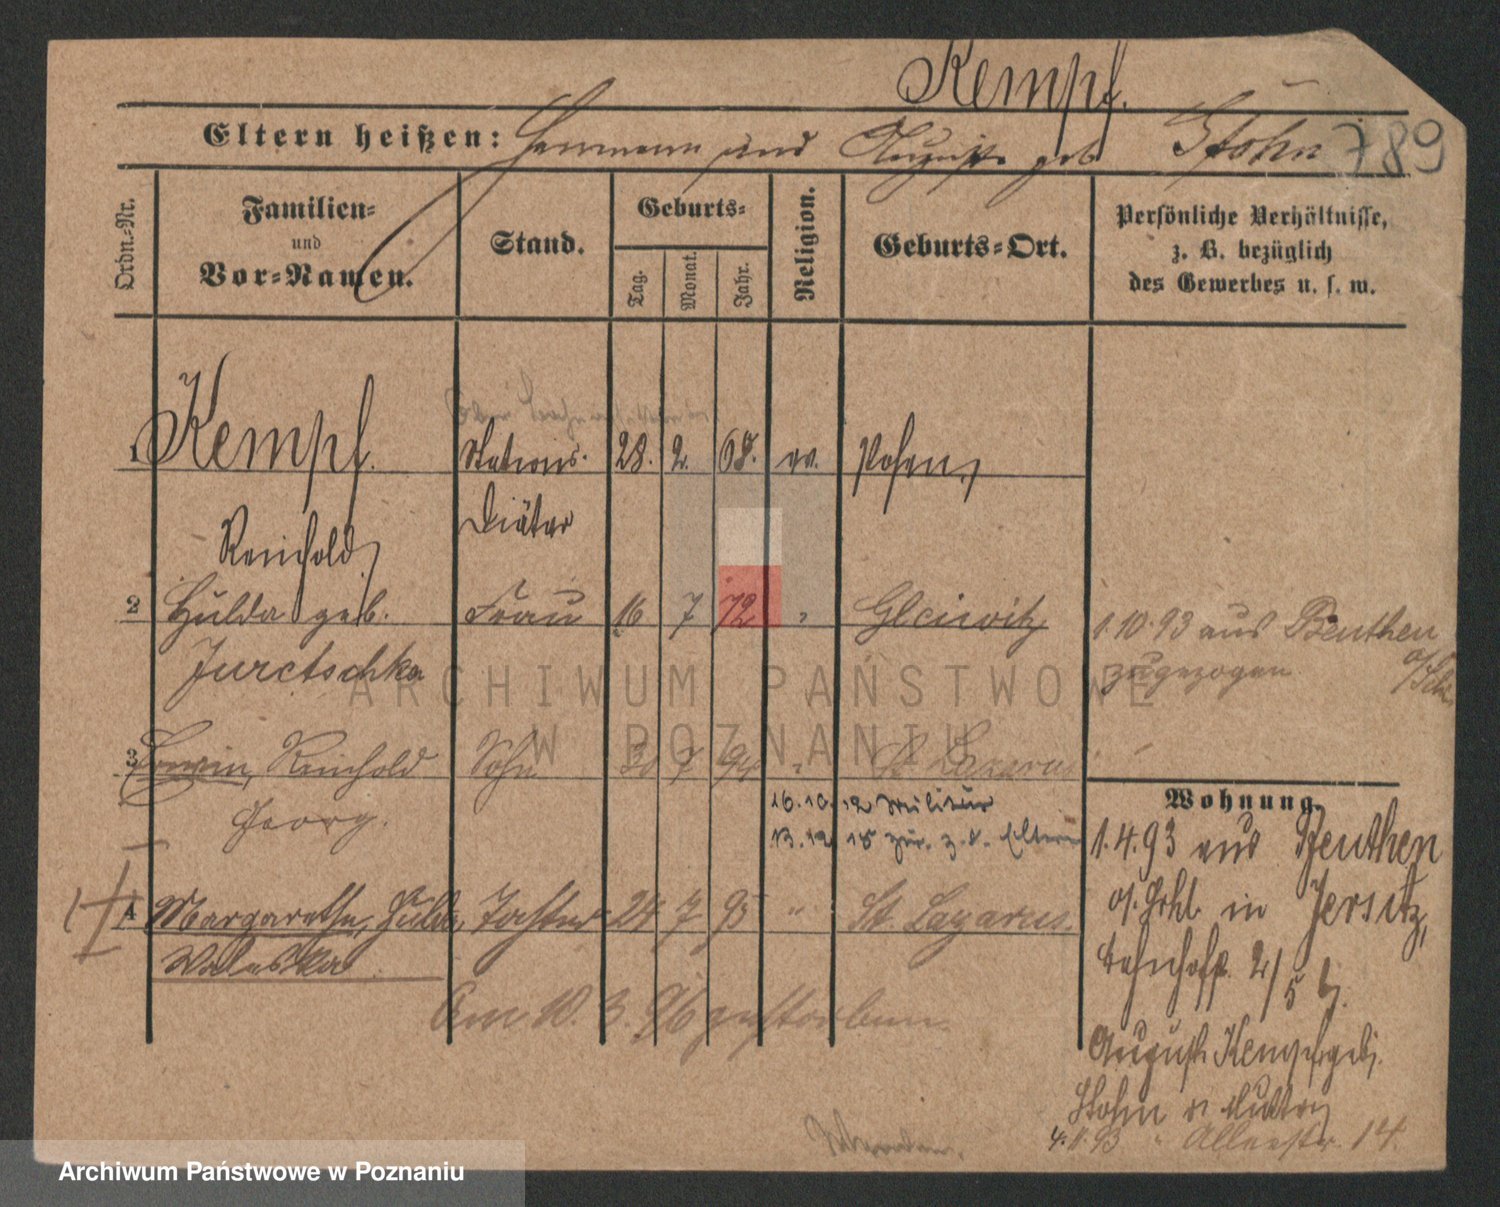 Kempf.
Eltern heißen: Herrmann und Auguste geb Stöhn 789
Ordn.-Nr.
Familien- und Vor-Namen.
Stand.
Geburts-
Tag. Monat. Jahr.
Religion.
Geburts-Ort.
Persönliche Verhältnisse, z. B. bezüglich des Gewerbes u. s. w.
1 Kempf. Stations- 28. 2. 68. ev. Posen,
Reinhold, Diätar
2 Hulda geb. Frau 16 7 72 " Gleiwitz 1.10.93 aus Beuthen
Juretschka zugezogen o/Schl.
3 Erwin, Reinhold Sohn 30 7 94 " St Lazarus
Georg.
16.10.12 Militär
13.12 15 zur. z. d. Eltern
4 Margarethe, Hulda, Tochter 24 7 95 " St. Lazarus.
Waleska
Am 10. 3. 96 gestorben.
Wohnung.
1.4.93 aus Beuthen
in Jersitz,
2/5 b.
August Kempf geb.
Mutter
4.11.93 " Alleestr. 14.
ARCHIWUM PAŃSTWOWE
W POZNANIU
Archiwum Państwowe w Poznaniu